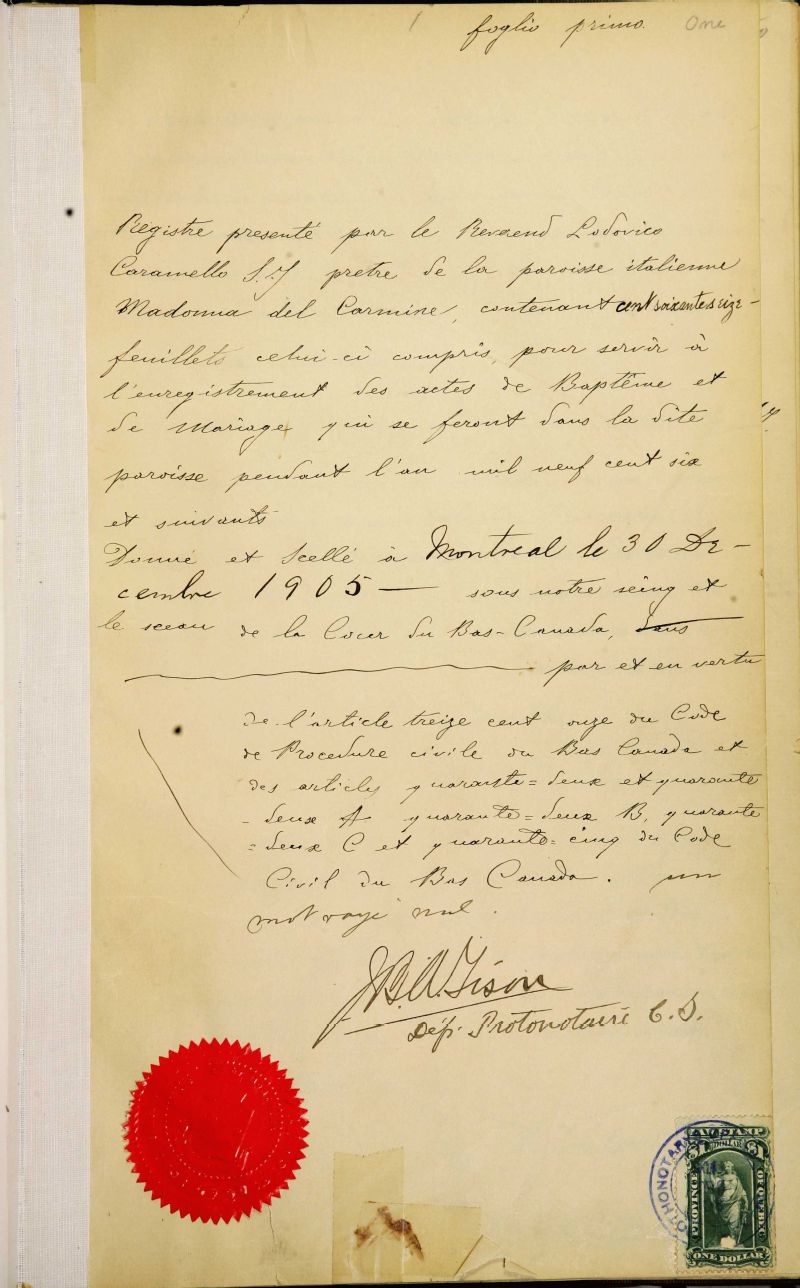 foglio primo. One
Registre presenté par le Reverend Lodovico
Caramello S.J pretre de la paroisse italienne
Madonna del Carmine, contenant cent soixante seize -
feuillets celui-ci compris, pour servir à
l'enregistrement des actes de Baptême et
de Mariage qui se feront dans la dite
paroisse pendant l'an mil neuf cent six
et suivants
Donné et Scellé à Montreal le 30 De-
cembre 1905 — sous notre seing et
le sceau de la Cour du Bas-Canada, dans
par et en vertu
de l'article treize cent onze du Code
de Procedure civile du Bas Canada et
des articles quarante=deux et quarante
-deux A quarante=deux B, quarante
=deux C et quarante=cinq du Code
Civil du Bas Canada. un
mot rayé nul.
J.B.A. Tison
Dép. Protonotaire C.S.
LAW STAMP
$1 DOLLAR $1
PROVINCE OF QUEBEC
ONE DOLLAR